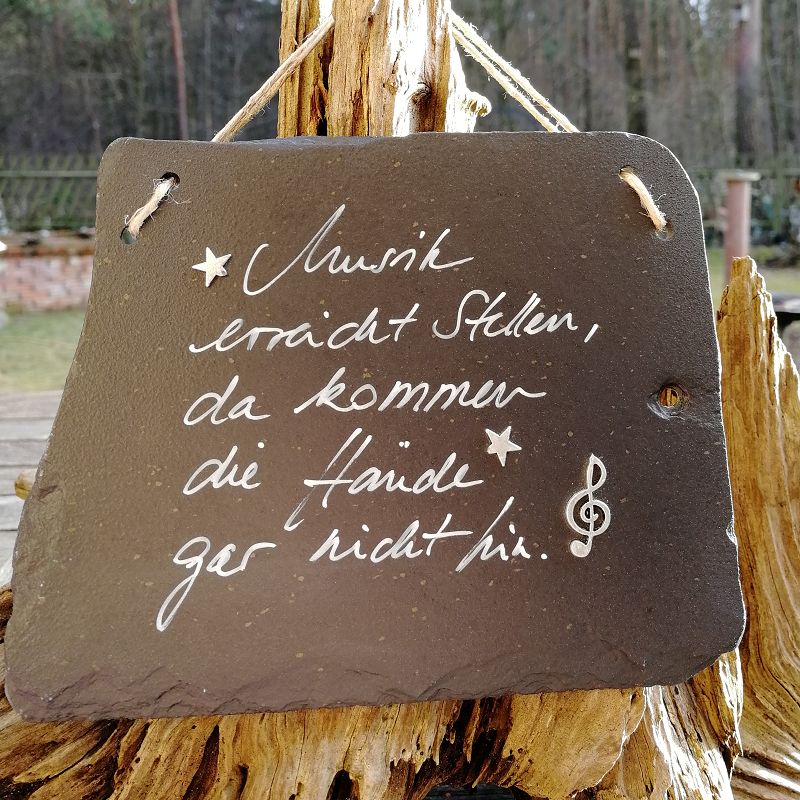 Musik
erreicht Stellen,
da kommen
die Hände
gar nicht hin.